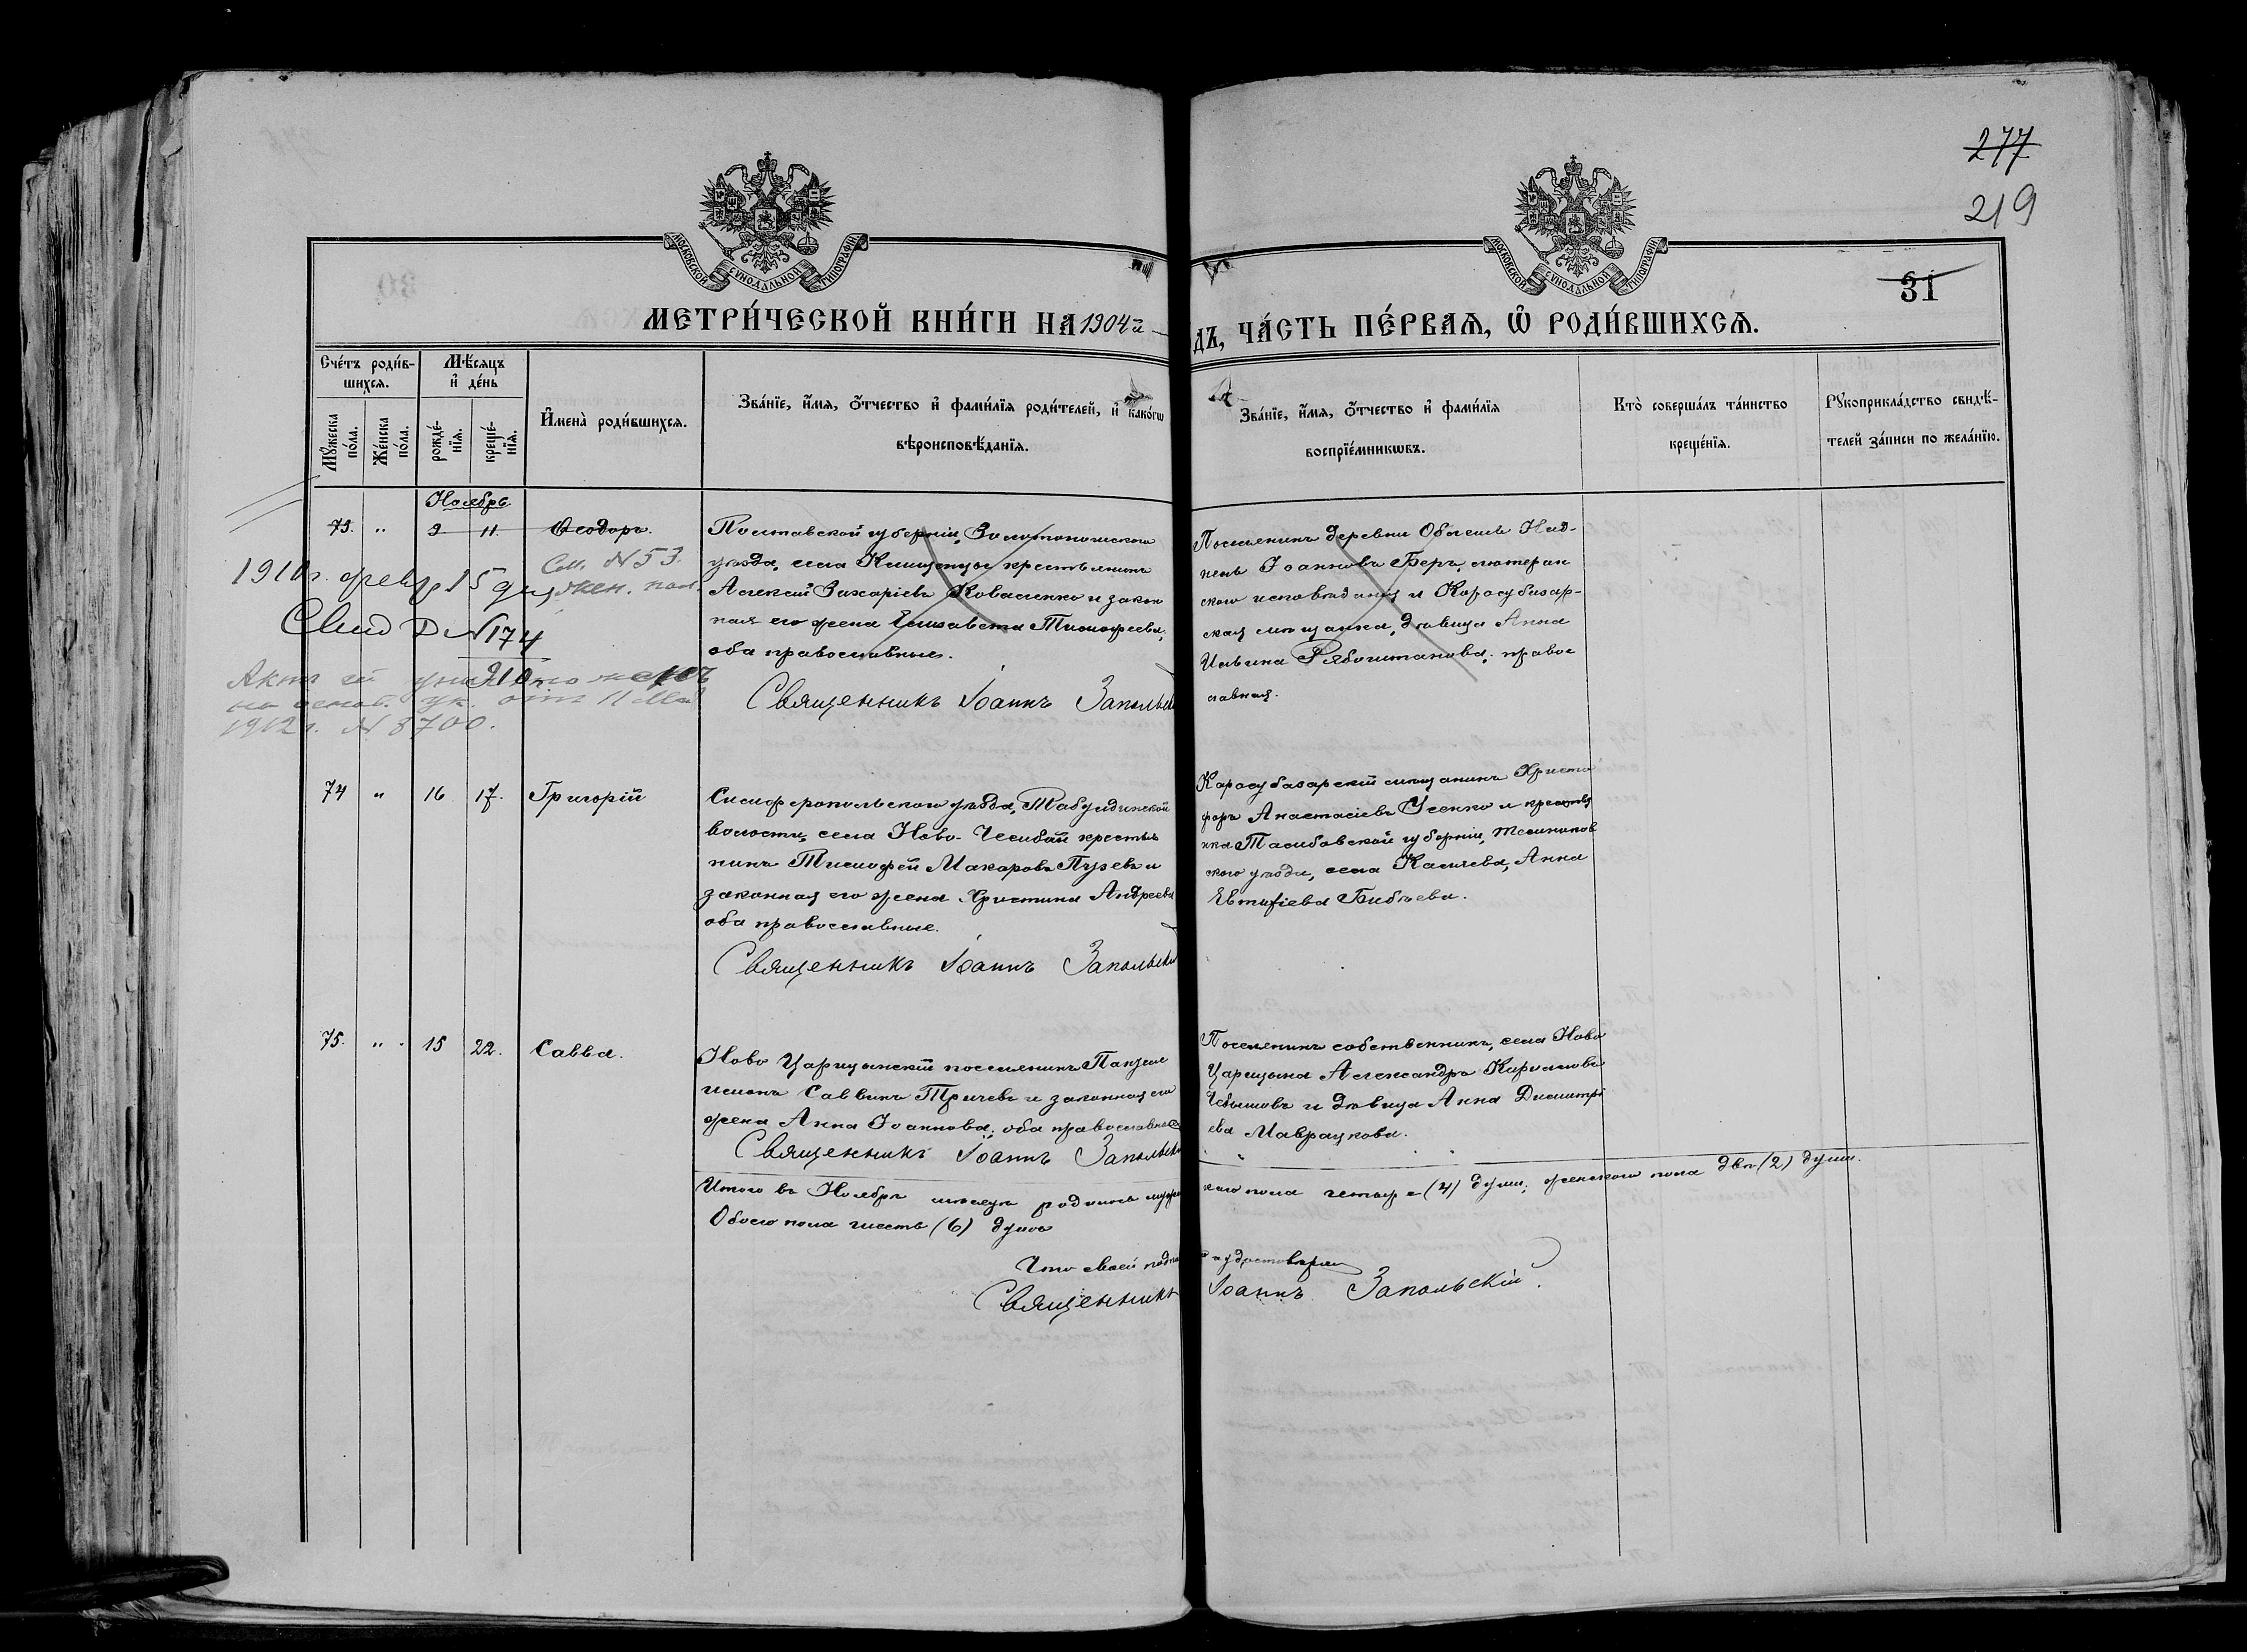 277
219
31
МОСКОВСКОЙ СѴНОДАЛЬНОЙ ТИПОГРАФІИ
МОСКОВСКОЙ СѴНОДАЛЬНОЙ ТИПОГРАФІИ
МЕТРИ́ЧЕСКОЙ КНИ́ГИ НА 1904й
ДЪ, ЧА́СТЬ ПЕ́РВАЯ, Ѡ҆ РОДИ́ВШИХСЯ.
Сче́тъ роди́в-
шихся.
Мѣ́сяцъ
и҆ де́нь
Мꙋ́жеска по́ла.
Же́нска по́ла.
рожде́-
нїя.
креще́-
нїя.
И҆мена̀ роди́вшихся.
Зва́нїе, и҆́мя, ѻ҆́тчество и҆ фами́лїя роди́телей, и҆ како́гѡ
вѣроисповѣ́данїя.
Зва́нїе, и҆́мя, ѻ҆́тчество и҆ фами́лїя
воспрїе́мникѡвъ.
Кто̀ соверша́лъ та́инство
креще́нїя.
Рꙋкоприкла́дство свидѣ́-
телей за́писи по жела́нїю.
Ноябрь
73. " 2 11 Ѳеодоръ.
См. N 53.
жен. пол.
1910 г. февр. 15 дня
Свид N 174
Актъ сей уничтоженъ
на основ. ук. отъ 11 Мая
1912 г. N 8700.
Полтавской губерніи, Золотоношскаго
уѣзда, села Клищенцы крестьянинъ
Алексій Захаріевъ Коваленко и закон
ная его жена Елисавета Тимофеева,
оба православные.
Священникъ Іоаннъ Запольскі
Поселянинъ деревни
Іоанновъ Беръ, лютеран
скаго исповѣданія и Карасубазар-
ская мѣщанка, дѣвица Анна
Ильина Рябоштанова, право
славная.
74 " 16 17. Григорій
Симферопольскаго уѣзда, Табулдинской
волости, села Ново-Чембай крестья
нинъ Тимофей Макаровъ Пузевъ и
законная его жена Христина Андреева
оба православные.
Священникъ Іоаннъ Запольскі
Карасубазарскій мѣщанинъ Христо
форъ Анастасіевъ Усенко и крестья
нка Тамбовской губерніи, Темников
скаго уѣзда, села Анна
Евтифіева
75. " 15 22. Савва.
Ново Царицынскій поселянинъ Пантеле
имонъ Саввинъ Тричевъ и законная его
жена Анна Іоаннова, оба православные
Священникъ Іоаннъ Запольскі
Поселянинъ собственникъ, села Ново
Царицына Александръ Кириловъ
и дѣвица Анна Димитрі
ева Маврацкова.
Итого въ Ноябрѣ мѣсяцѣ родилось мужс
каго пола четыре (4) души, женскаго пола двѣ (2) души.
Обоего пола шесть (6) душъ
Что своей подпи
удостовѣряю
Священникъ Іоаннъ Запольскій.